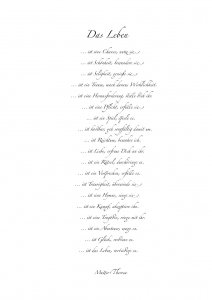 Das Leben
... ist eine Chance, nutze sie...
... ist Schönheit, bewundere sie...
... ist Seligkeit, genieße sie...
... ist ein Traum, mach daraus Wirklichkeit.
... ist eine Herausforderung, stelle dich ihr.
... ist eine Pflicht, erfülle sie...
... ist ein Spiel, spiele es.
... ist kostbar, geh sorgfältig damit um.
... ist Reichtum, bewahre ihn.
... ist Liebe, erfreue Dich an ihr.
... ist ein Rätsel, durchdringe es.
... ist ein Versprechen, erfülle es.
... ist Traurigkeit, überwinde sie...
... ist eine Hymne, singe sie...
... ist ein Kampf, akzeptiere ihn.
... ist eine Tragödie, ringe mit ihr.
... ist ein Abenteuer, wage es.
... ist Glück, verdiene es.
... ist das Leben, verteidige es.
Mutter Theresa